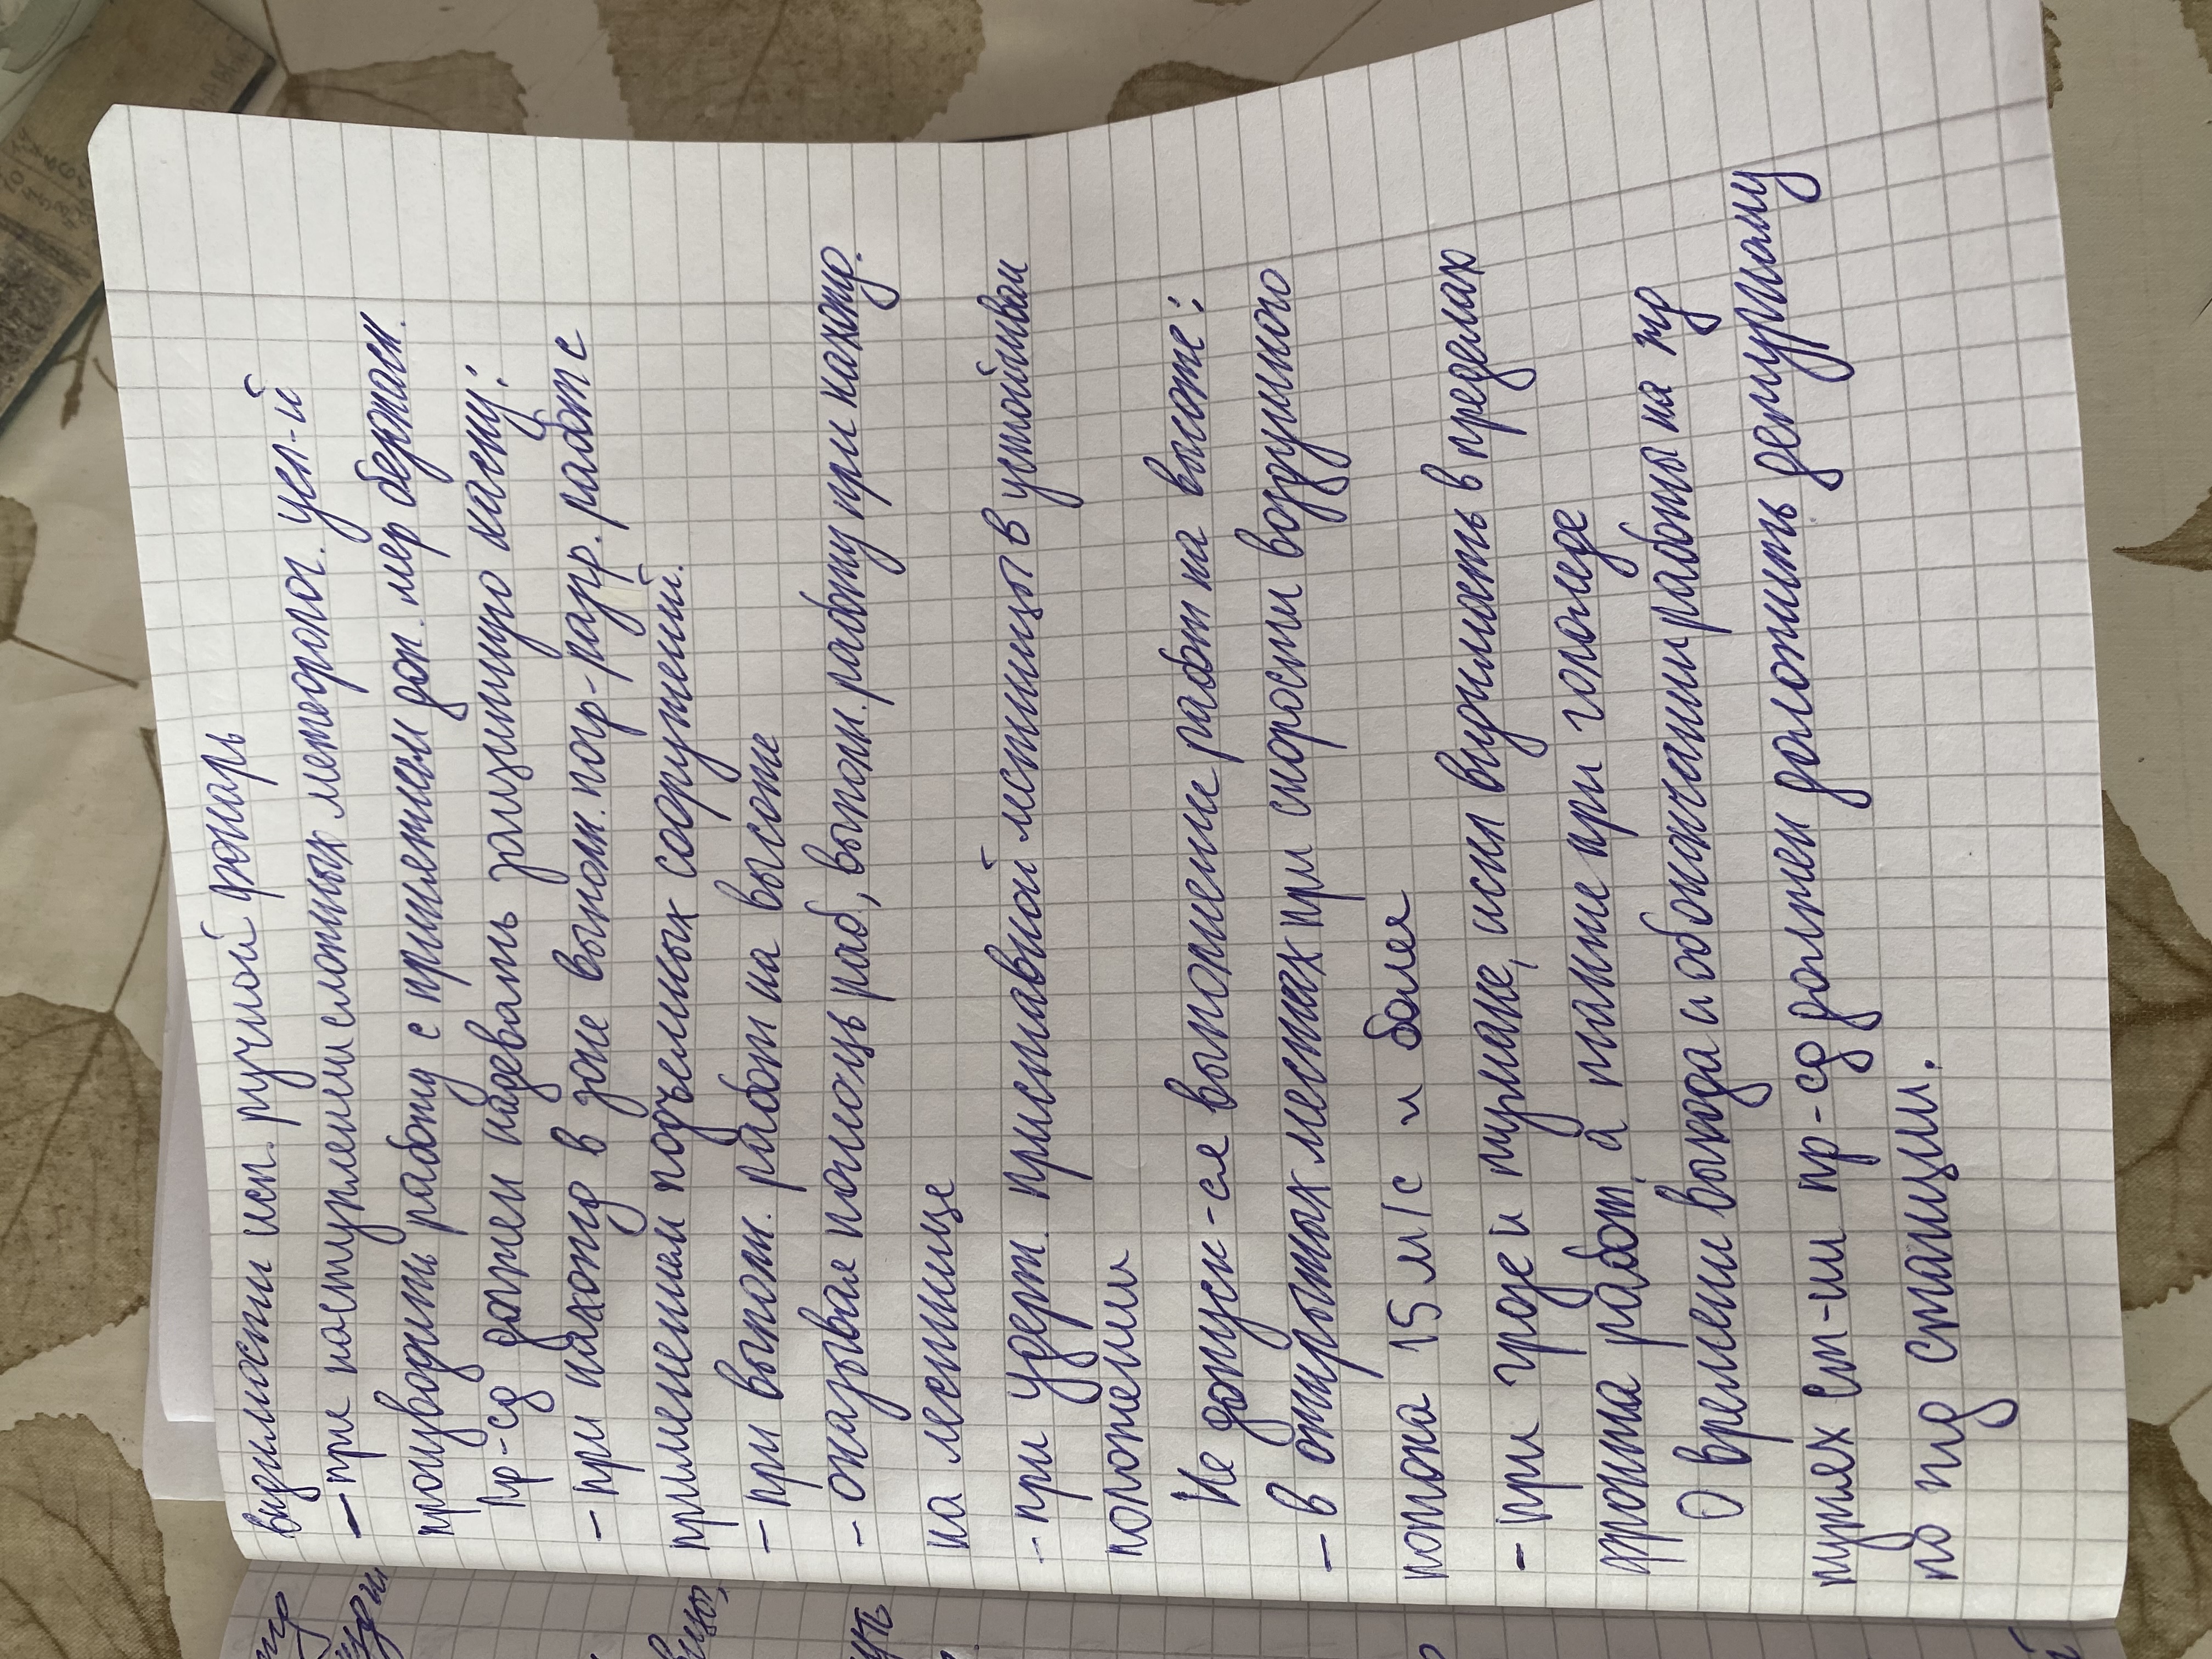 видимости исп. ручной фонарь
– при наступлении сложных метеоролог. усл-й
производить работу с принятием доп. мер безопасн.
Пр-сд должен надевать защитную каску:
– при нахожд в зоне выполн. погр-разгр. работ с
применением подъемных сооружений.
– при выполн. работ на высоте
– оказывая помощь раб, выполн. работу при нахожд.
на лестнице
– при удерж. приставной лестницы в устойчивом
положении
Не допуск-ся выполнение работ на высоте:
– в открытых местах при скорости воздушного
потока 15 м/с и более
– при грозе и тумане, искл видимость в пределах
фронта работ, а также при гололеде
О времени выхода и об окончании работы на жд
путях ст-ии пр-сд должен доложить дежурному
по жд станции.